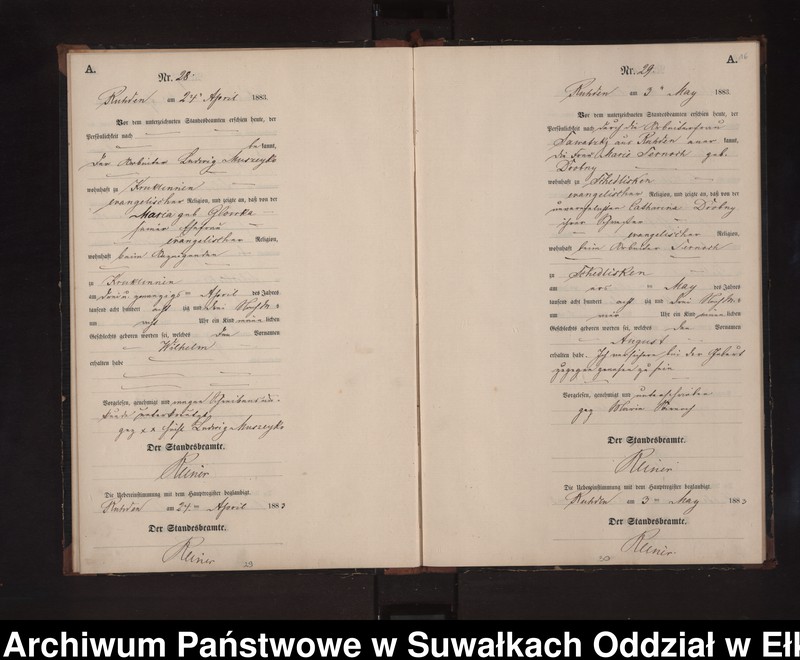 A.
Nr. 28.
Ruhden am 24t April 1883.
Vor dem unterzeichneten Standesbeamten erschien heute, der
Persönlichkeit nach
be kannt,
der Arbeiter Ludwig Muszeyko
wohnhaft zu Kruklinnen
evangelischer Religion, und zeigte an, daß von der
Maria geb. Glowka
seiner Ehefrau
evangelischer Religion,
wohnhaft beim Anzeigenden
zu Kruklinnen
am drei u. zwanzigsten April des Jahres
tausend acht hundert acht zig und drei Nachts
um acht Uhr ein Kind männlichen
Geschlechts geboren worden sei, welches den Vornamen
Wilhelm
erhalten habe
Vorgelesen, genehmigt und wegen Schreibensun-
kunde unterkreuzt
gez. xx Ludwig Muszeyko
Der Standesbeamte.
Reiner
Die Uebereinstimmung mit dem Hauptregister beglaubigt
Ruhden am 24ten April 1883
Der Standesbeamte.
Reiner
A.
Nr. 29.
Ruhden am 3t May 1883.
Vor dem unterzeichneten Standesbeamten erschien heute, der
Persönlichkeit nach durch die Arbeiterfrau
aus Ruhden aner kannt,
die Frau Marie geb.
Drobny
wohnhaft zu Schedlisken
evangelischer Religion, und zeigte an, daß von der
unverehelichten Catharina Drobny
ihrer Schwester
evangelischer Religion,
wohnhaft beim Arbeiter
zu Schedlisken
am ersten May des Jahres
tausend acht hundert acht zig und drei Nachts
um Uhr ein Kind männlichen
Geschlechts geboren worden sei, welches den Vornamen
August
erhalten habe. Ich versichere bei der Geburt
zugegen gewesen zu sein
Vorgelesen, genehmigt und unterschrieben
gez. Marie
Der Standesbeamte.
Reiner
Die Uebereinstimmung mit dem Hauptregister beglaubigt
Ruhden am 3ten May 1883
Der Standesbeamte.
Reiner
Archiwum Państwowe w Suwałkach Oddział w Ełk